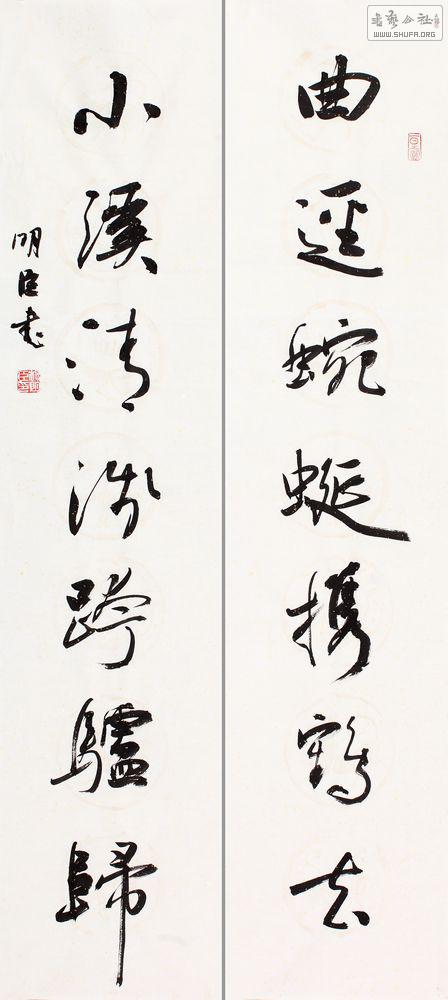 書藝公社
WWW.SHUFA.ORG
曲逕蜿蜒携鶴去
小溪清淺跨驢歸
明臣書